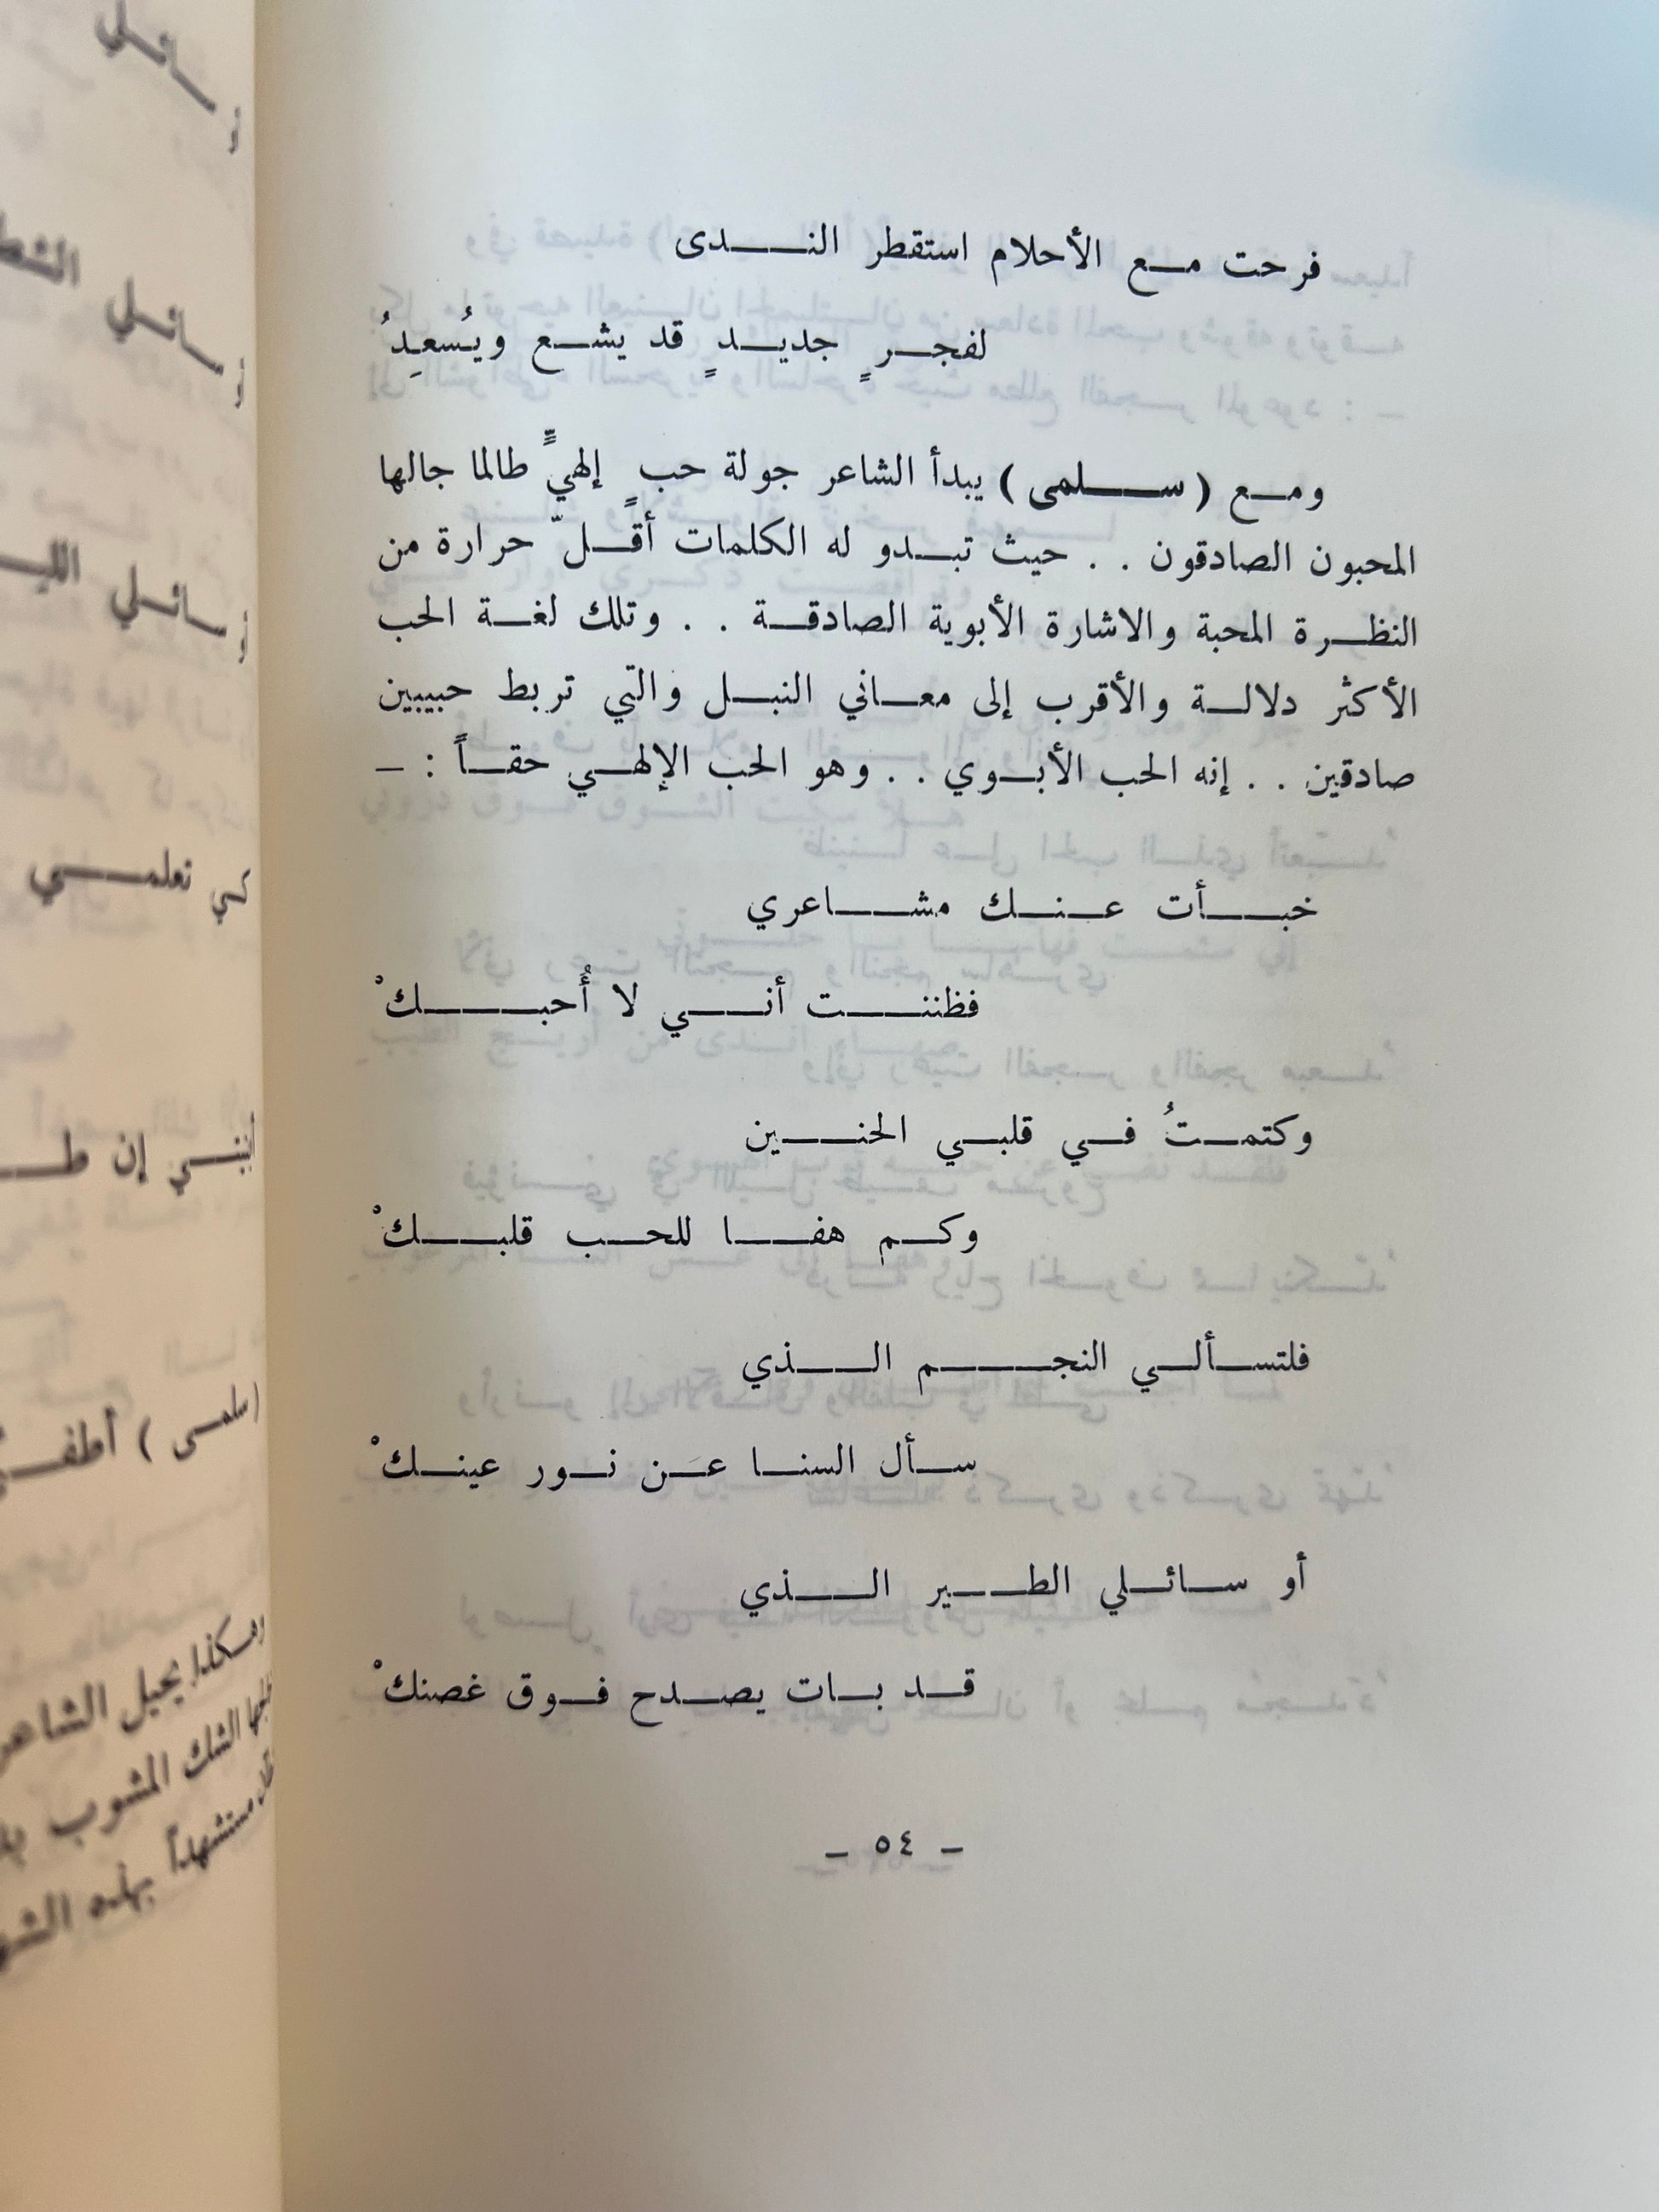 فرحت مع الأحلام استقطر الندى
لفجرٍ جديدٍ قد يشع ويُسعِدُ
ومع (سلمى) يبدأ الشاعر جولة حبٍ إلهيٍّ طالما جالها
المحبون الصادقون . . حيث تبدو له الكلمات أقلّ حرارة من
النظرة المحبة والاشارة الأبوية الصادقة . . وتلك لغة الحب
الأكثر دلالة والأقرب إلى معاني النبل والتي تربط حبيبين
صادقين . . إنه الحب الأبوي . . وهو الحب الإلهي حقاً : –
خبأت عنك مشاعري
فظننت أني لا أُحبكْ
وكتمتُ في قلبي الحنين
وكم هفا للحب قلبكْ
فلتسألي النجم الذي
سأل السنا عَن نور عينكْ
أو سائلي الطير الذي
قد بات يصدح فوق غصنكْ
– ٥٤ –
سائلي
أو
سائلي
أو سائلي
كي تعلمي
إن
(سلمى) أطف
وهكذا يحيل الشاعر
الشك المشوب
مستشهداً بهذه